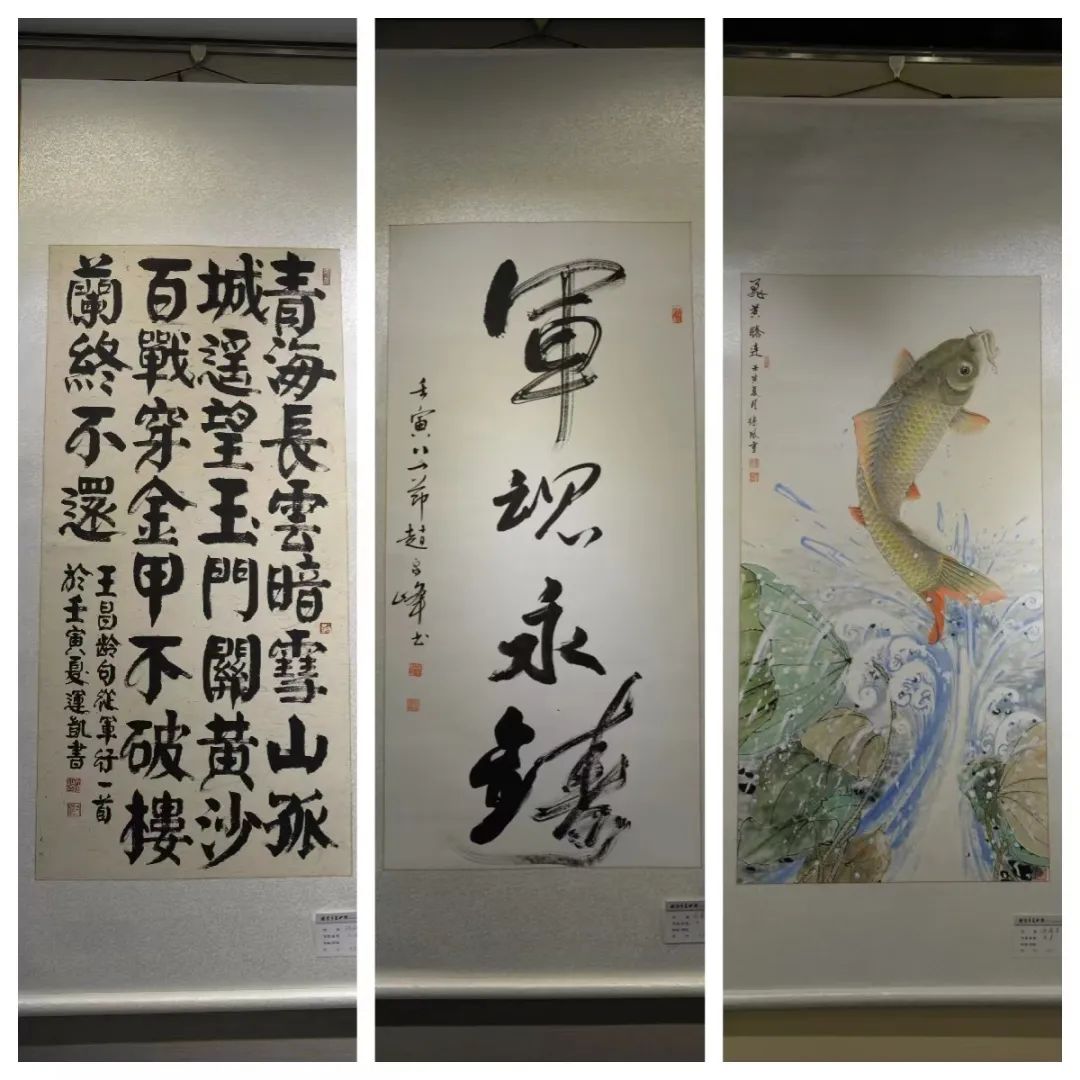 青海長雲暗雪山孤
城遥望玉門關黃沙
百戰穿金甲不破樓
蘭終不還
王昌龄句從軍行一首
於壬寅夏運凱書
軍魂永鑄
壬寅八一节趙
峰书
飛黄騰達
壬寅夏月